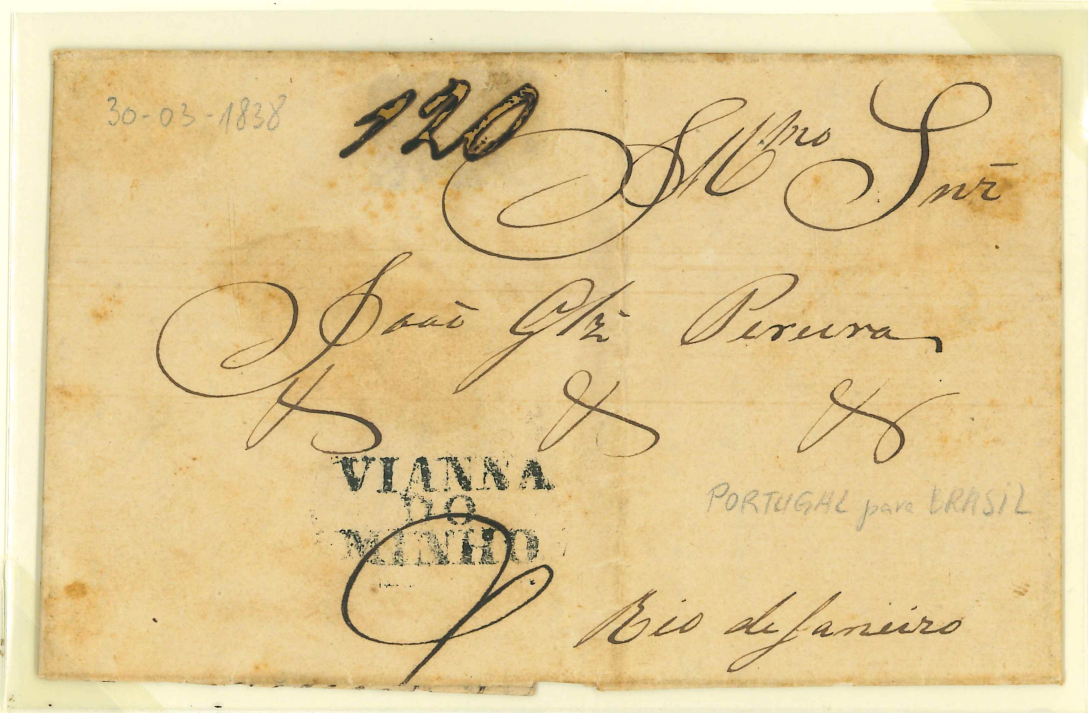 30-03-1838
120
Illmo Snr
João Glz Pereira
& & &
VIANNA
DO
MINHO
PORTUGAL para BRASIL
Rio de Janeiro